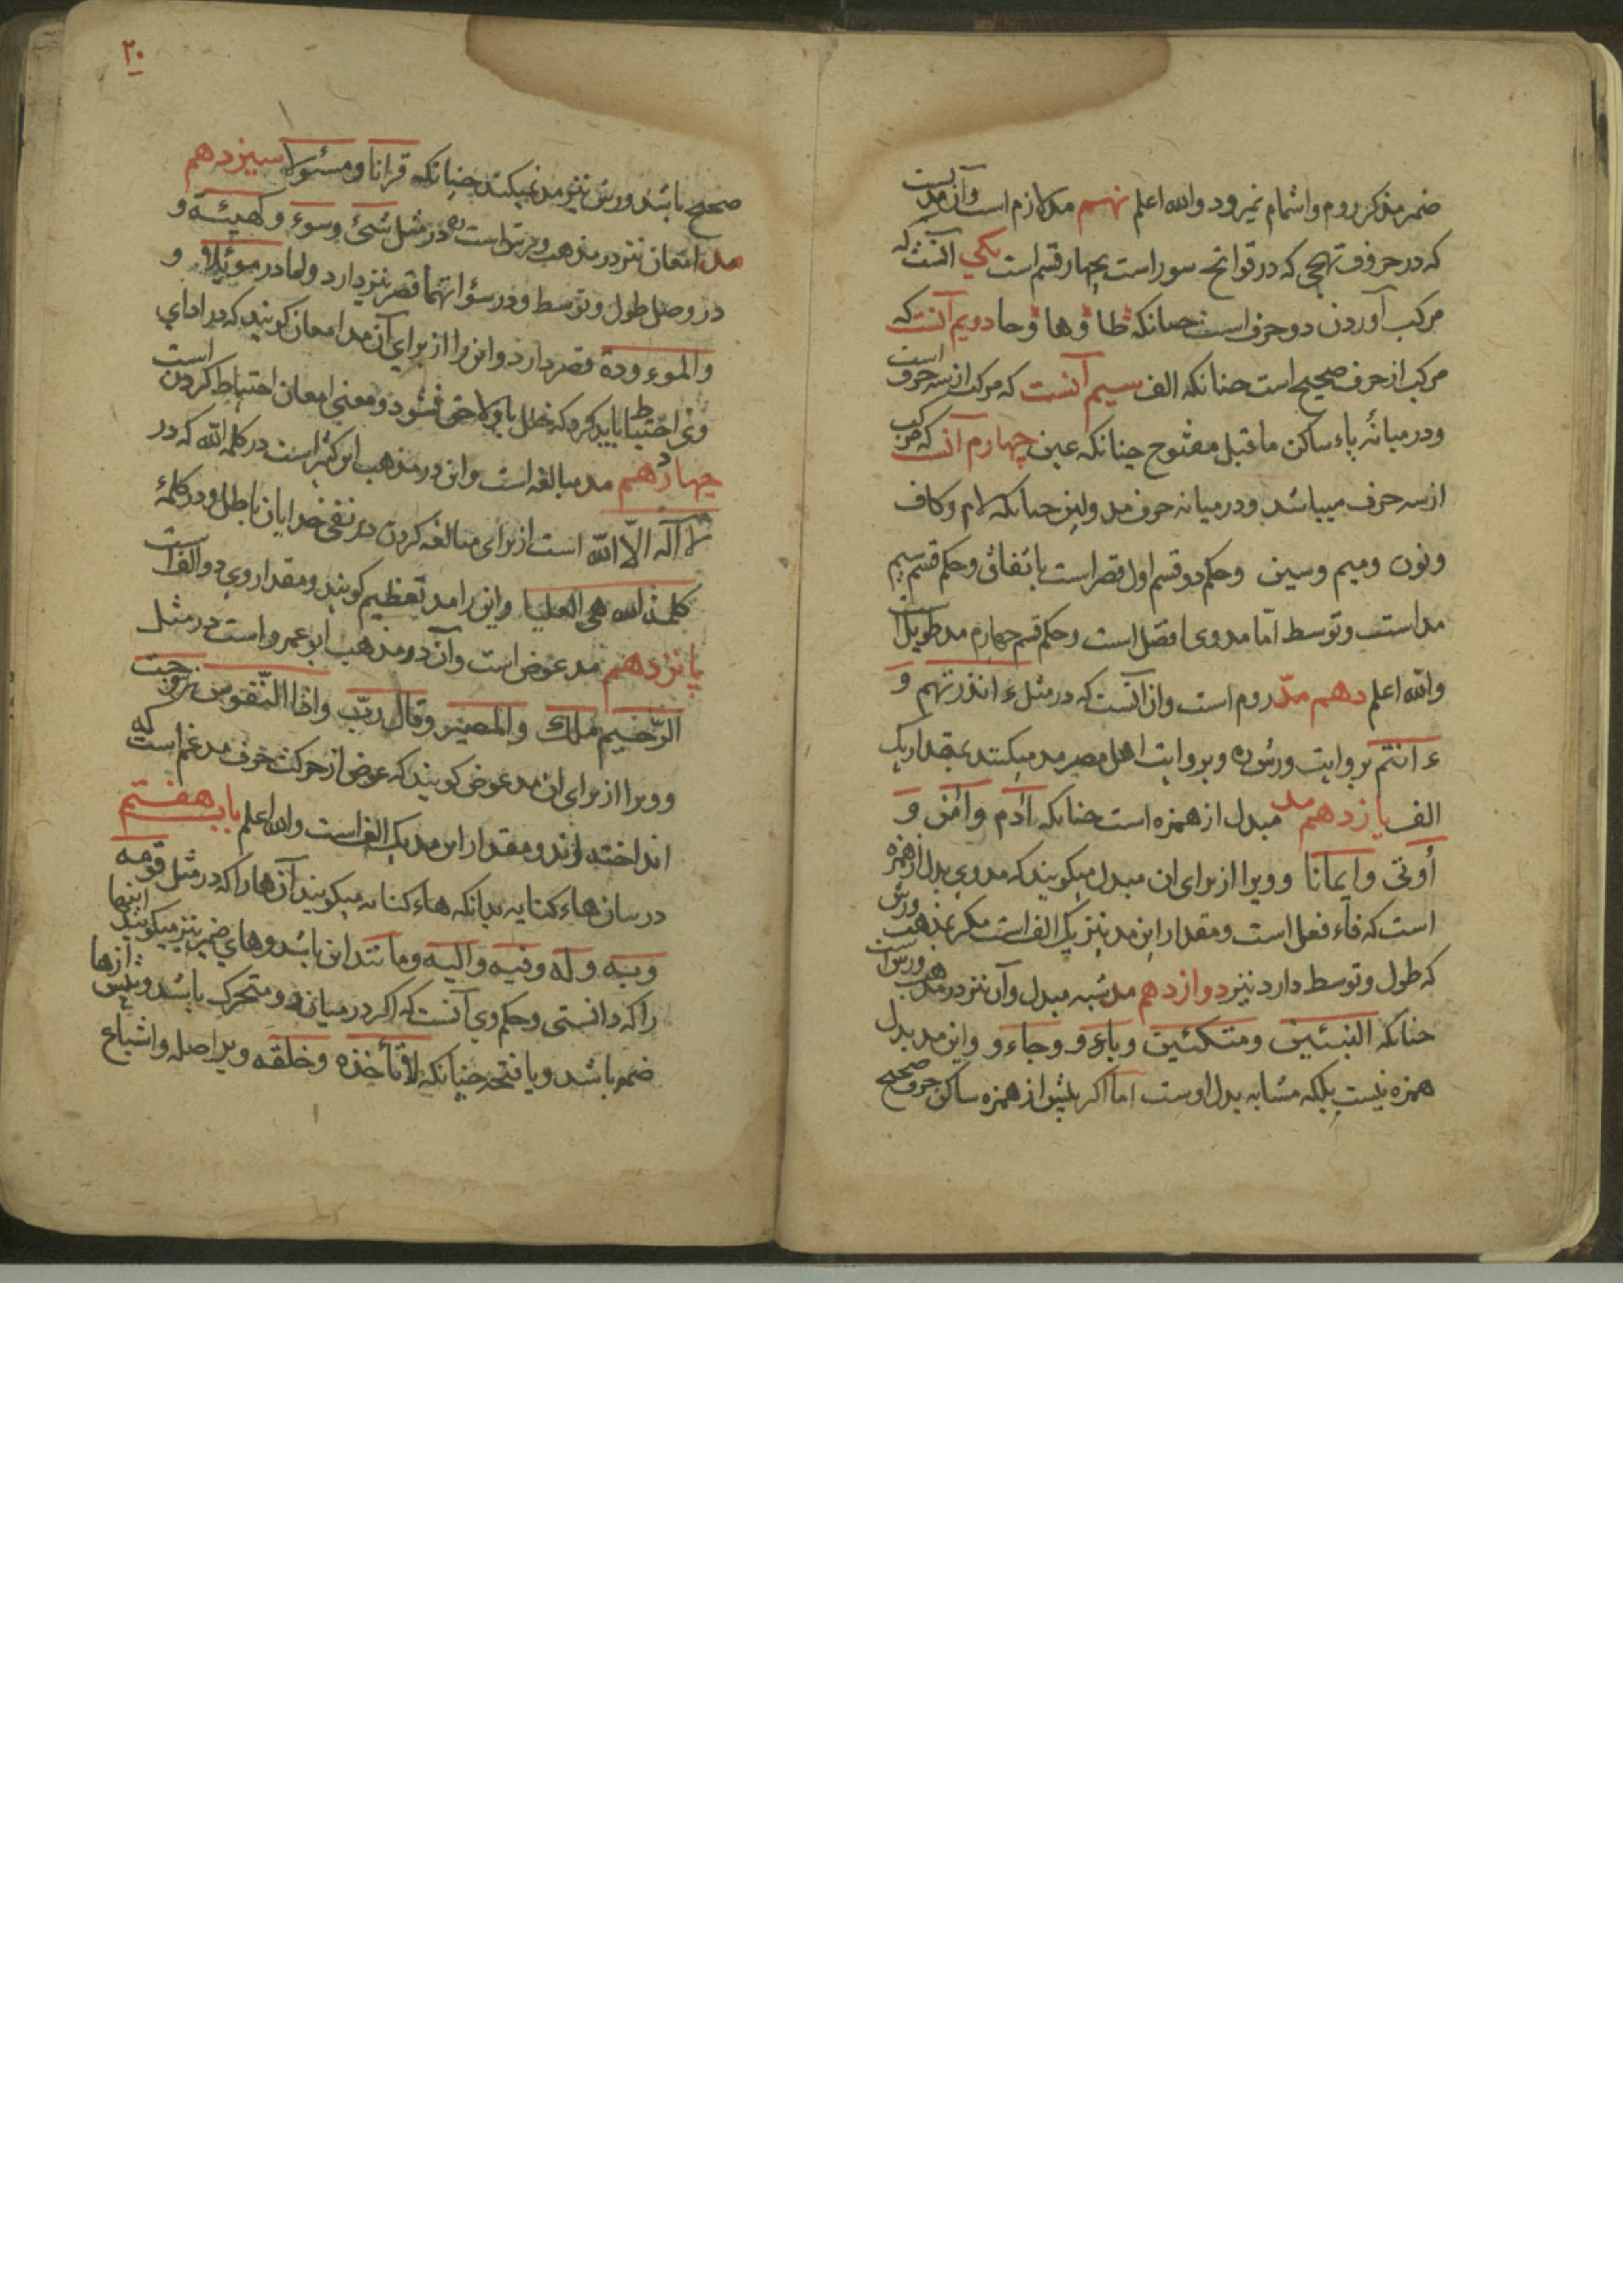 ضمر مذکر روم و اشمام نمیرود والله اعلم نهم مد لازم است و آن مدیست
که در حروف تهجی که در فواتح سور است بچهار قسم است یکی آنست که
مرکب آوردن دو حرف است چنانکه طا و ها و حا دویم آنست که
مرکب از حرف صحیح است چنانکه الف سیم آنست که مرکب از سه حرف است
و در میانهٔ یاء ساکن ماقبل مفتوح چنانکه عین چهارم آنست که مرکب
از سه حرف میباشد و در میانه حرف مد ولین چنانکه لام و کاف
و نون و میم و سین و حکم دو قسم اول قصر است باتفاق و حکم قسم سیم
مد است و توسط اما مد وی افضل است و حکم قسم چهارم مد طویل است
والله اعلم دهم مدّ روم است و ان آنست که در مثل ء انذرتهم وَ
ء انتم بروایت ورش ره و بروایت اهل مصر مد میکنند بمقدار یک
الف یازدهم مد مبدل از همزه است چنانکه آدم و آمن وَ
أوتی و ایمانا و ویرا از برای ان مبدل میکویند که مد وی بدل از همزه
است که فاء فعل است و مقدار این مد نیز یک الف است مکر بمذهب ورش
که طول و توسط دارد نیز دوازدهم مد شبه مبدل و آن نیز در مذهب ورش است
چنانکه النبئین و متکئین و باءو و وجاءو و این مد بدل
همزه نیست بلکه مشابه بدل اوست اما اکر پیش از همزه ساکن حرف صحیح
۲۰
صحیح باشد ورش نیز مد نمیکند چنانکه قرانا و مسئولا سیزدهم
مد امعان نیز در مذهب ورش است ره در مثل شئ و سوء و کهیئة و
در وصل طول و توسط و در سؤاتهما قصر نیز دارد و اما در موئلا و
والموءودة قصر دارد و این را از برای آن مد امعان کویند که در ادای
وی احتیاط باید کرد که خلل باو لاحق نشود و معنی امعان احتیاط کردن است
چهاردهم مد مبالغه است و این در مذهب ابن کثیر است در کلمه الله که در
لا آله الّا الله است از برای مبالغه کردن در نفی خدایان باطل و در کلمهٔ
کلمة الله هی العلیا و این را مد تعظیم کویند و مقدار وی دو الف است
پانزدهم مد عوض است و آن در مذهب ابو عمرو است در مثل
الرّحیم ملك و المصیر و قال ربّ و اذا النّفوس زوجت
و ویرا از برای ان مد عوض کویند که عوض از حرکت حرف مدغم است که
انداخته اند و مقدار این مد یک الف است والله اعلم باب هفتم
در بیان هاء کنایه بدانکه هاء کنایه میکویند آن ها را که در مثل قومه
و به و له و فیه و الیه و مانند این باشد و های ضمیر نیز میکویند اینها
را که دانستی و حکم وی آنست که اکر در میان دو متحرک باشد و پیش از ها
ضمه باشد و یا فتحه چنانکه لا تأخذه و خلقه ویرا صله و اشباع